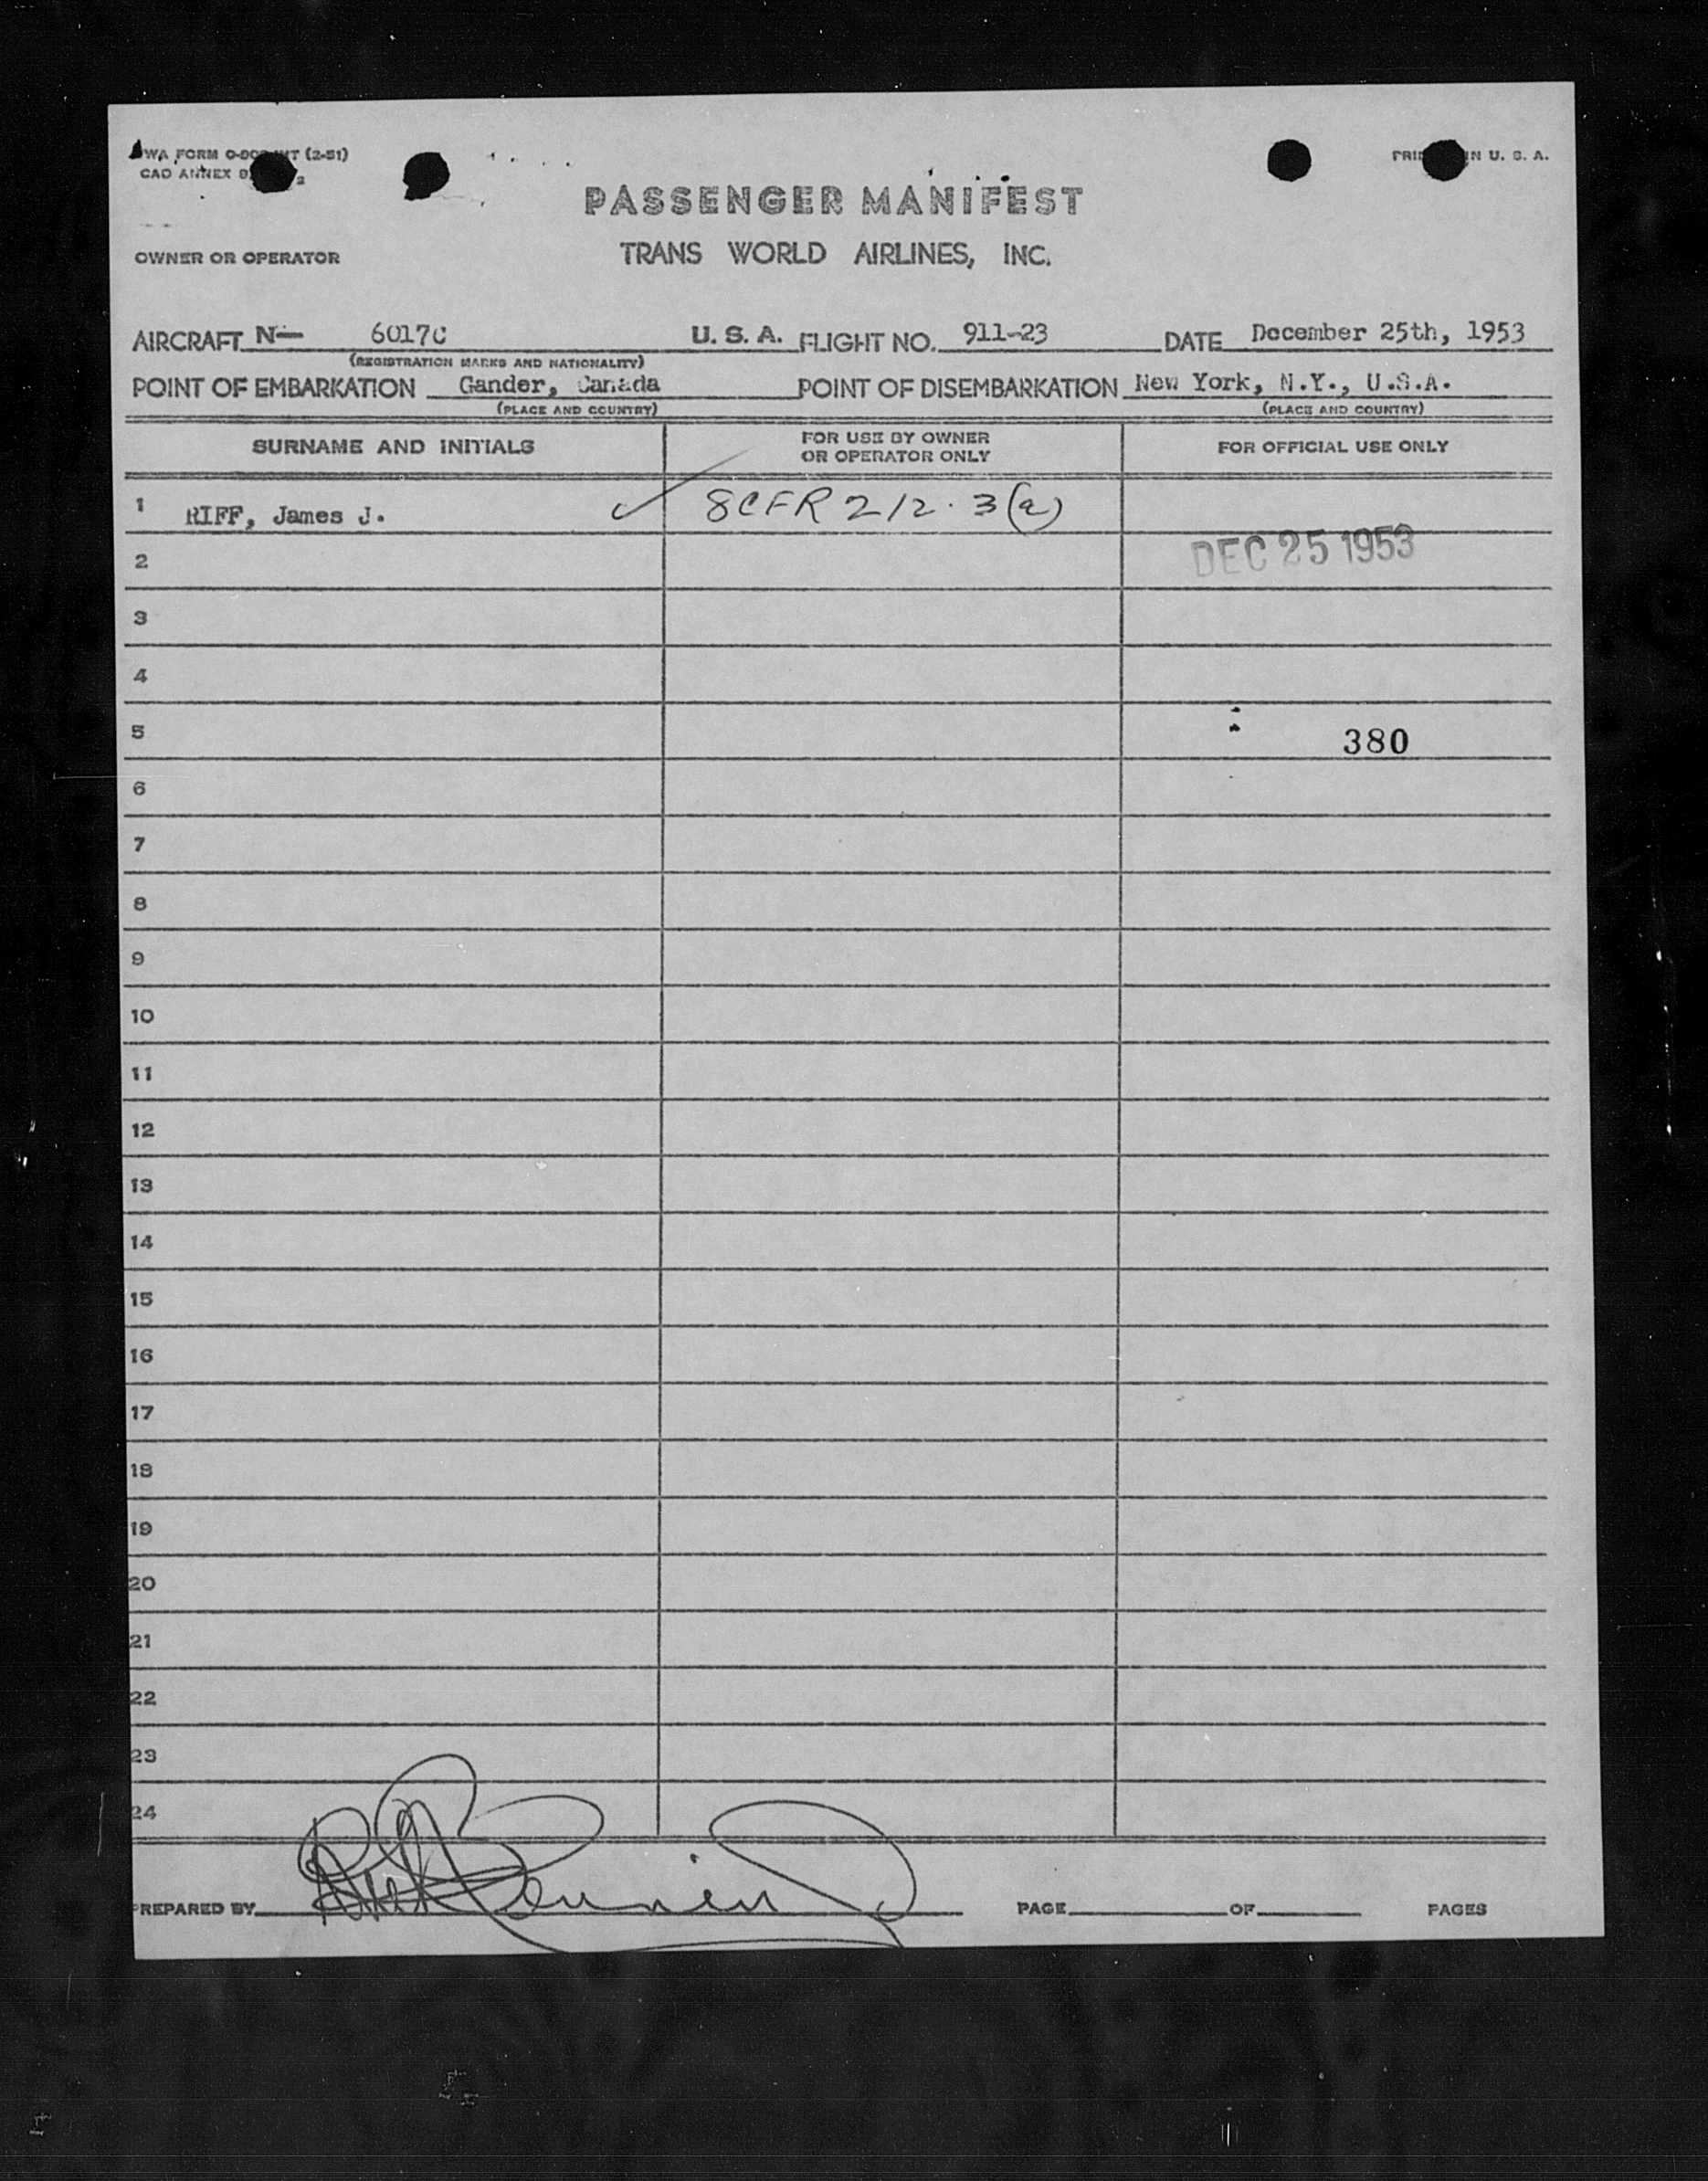 TWA FORM O-
T (2-51)
PRI
IN U. S. A.
CAO ANNEX 9
2
PASSENGER MANIFEST
OWNER OR OPERATOR TRANS WORLD AIRLINES, INC.
AIRCRAFT N— 6017C U. S. A. FLIGHT NO. 911-23 DATE December 25th, 1953
(REGISTRATION MARKS AND NATIONALITY)
POINT OF EMBARKATION Gander, Canada POINT OF DISEMBARKATION New York, N.Y., U.S.A.
(PLACE AND COUNTRY) (PLACE AND COUNTRY)
SURNAME AND INITIALS FOR USE BY OWNER OR OPERATOR ONLY FOR OFFICIAL USE ONLY
1 RIFF, James J. ✓ 8CFR 212.3(a)
2 DEC 25 1953
3
4
5 380
6
7
8
9
10
11
12
13
14
15
16
17
18
19
20
21
22
23
24
PREPARED BY PAGE OF PAGES